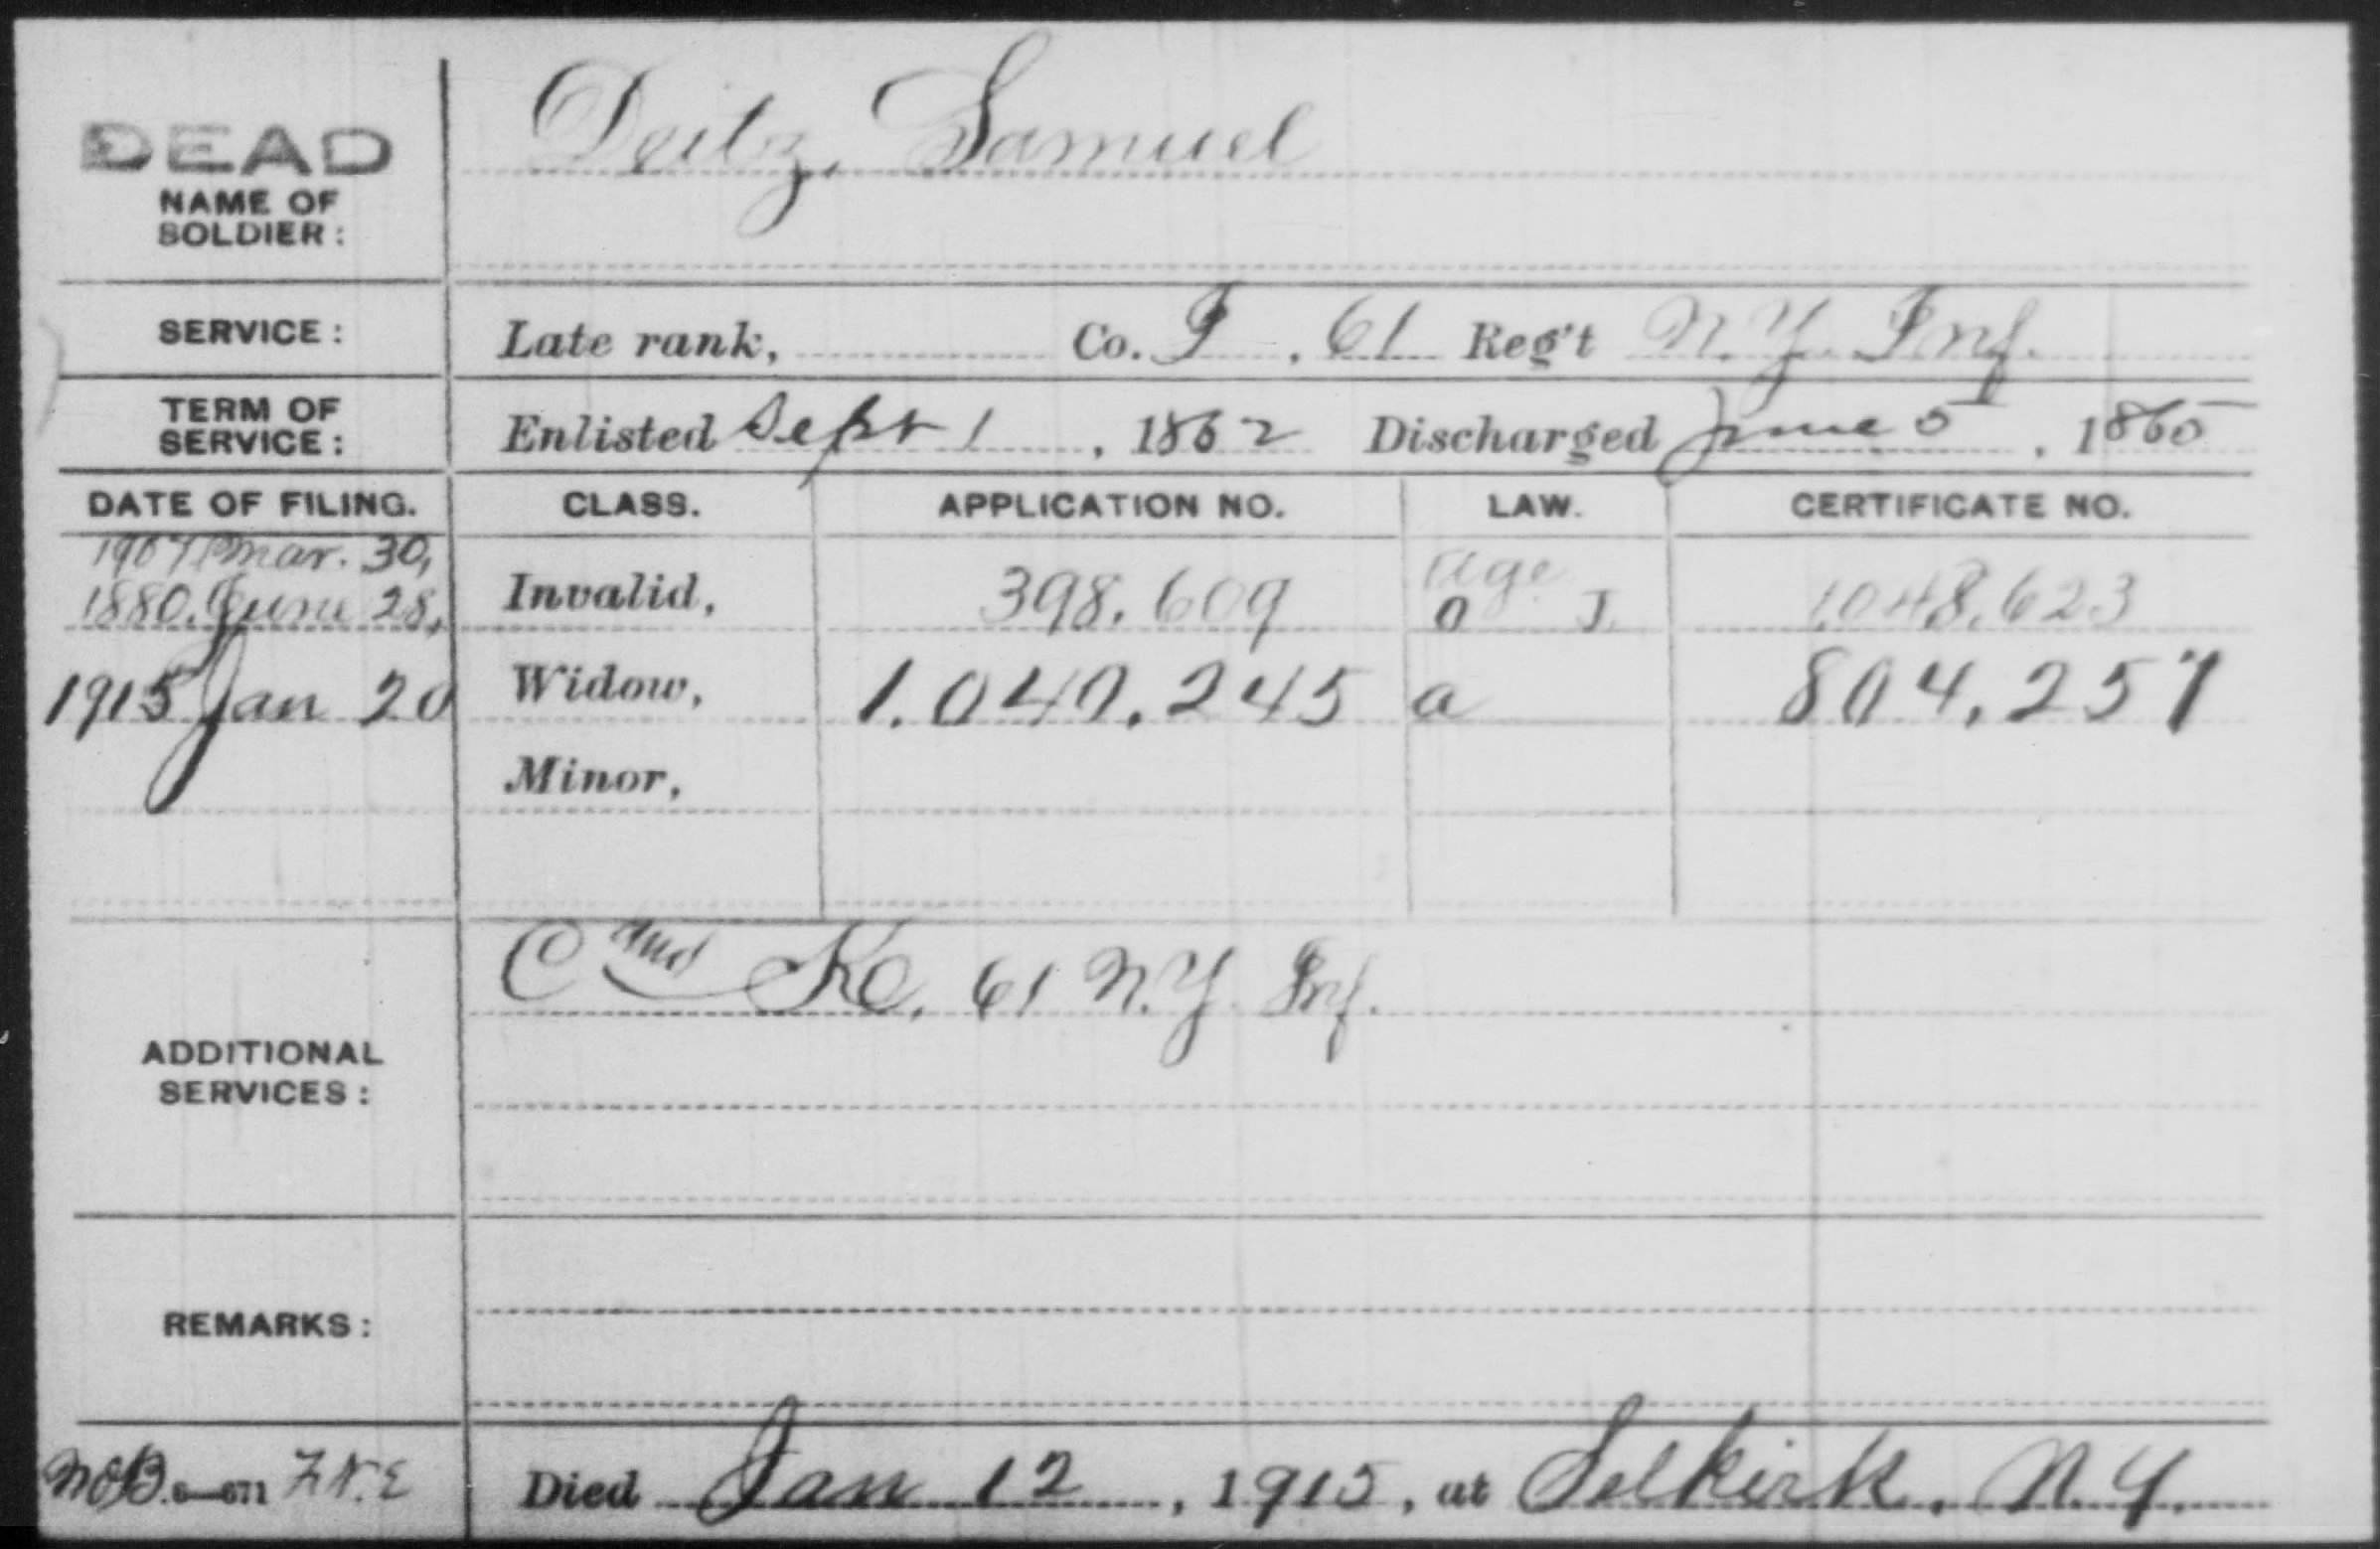 DEAD
NAME OF
SOLDIER:
Deitz, Samuel
SERVICE: Late rank, Co. I, 61 Reg't N.Y. Inf.
TERM OF
SERVICE: Enlisted Sept 1, 1862 Discharged June 5, 1865
DATE OF FILING. CLASS. APPLICATION NO. LAW. CERTIFICATE NO.
1907 Mar. 30, Age
1880. June 28, Invalid, 398.609 O J. 1.048.623
1915 Jan 20 Widow, 1.040.245 a 804.257
Minor,
C and K. 61 N.Y. Inf.
ADDITIONAL
SERVICES:
REMARKS:
6—671 Died Jan 12, 1915, at Selkirk, N.Y.